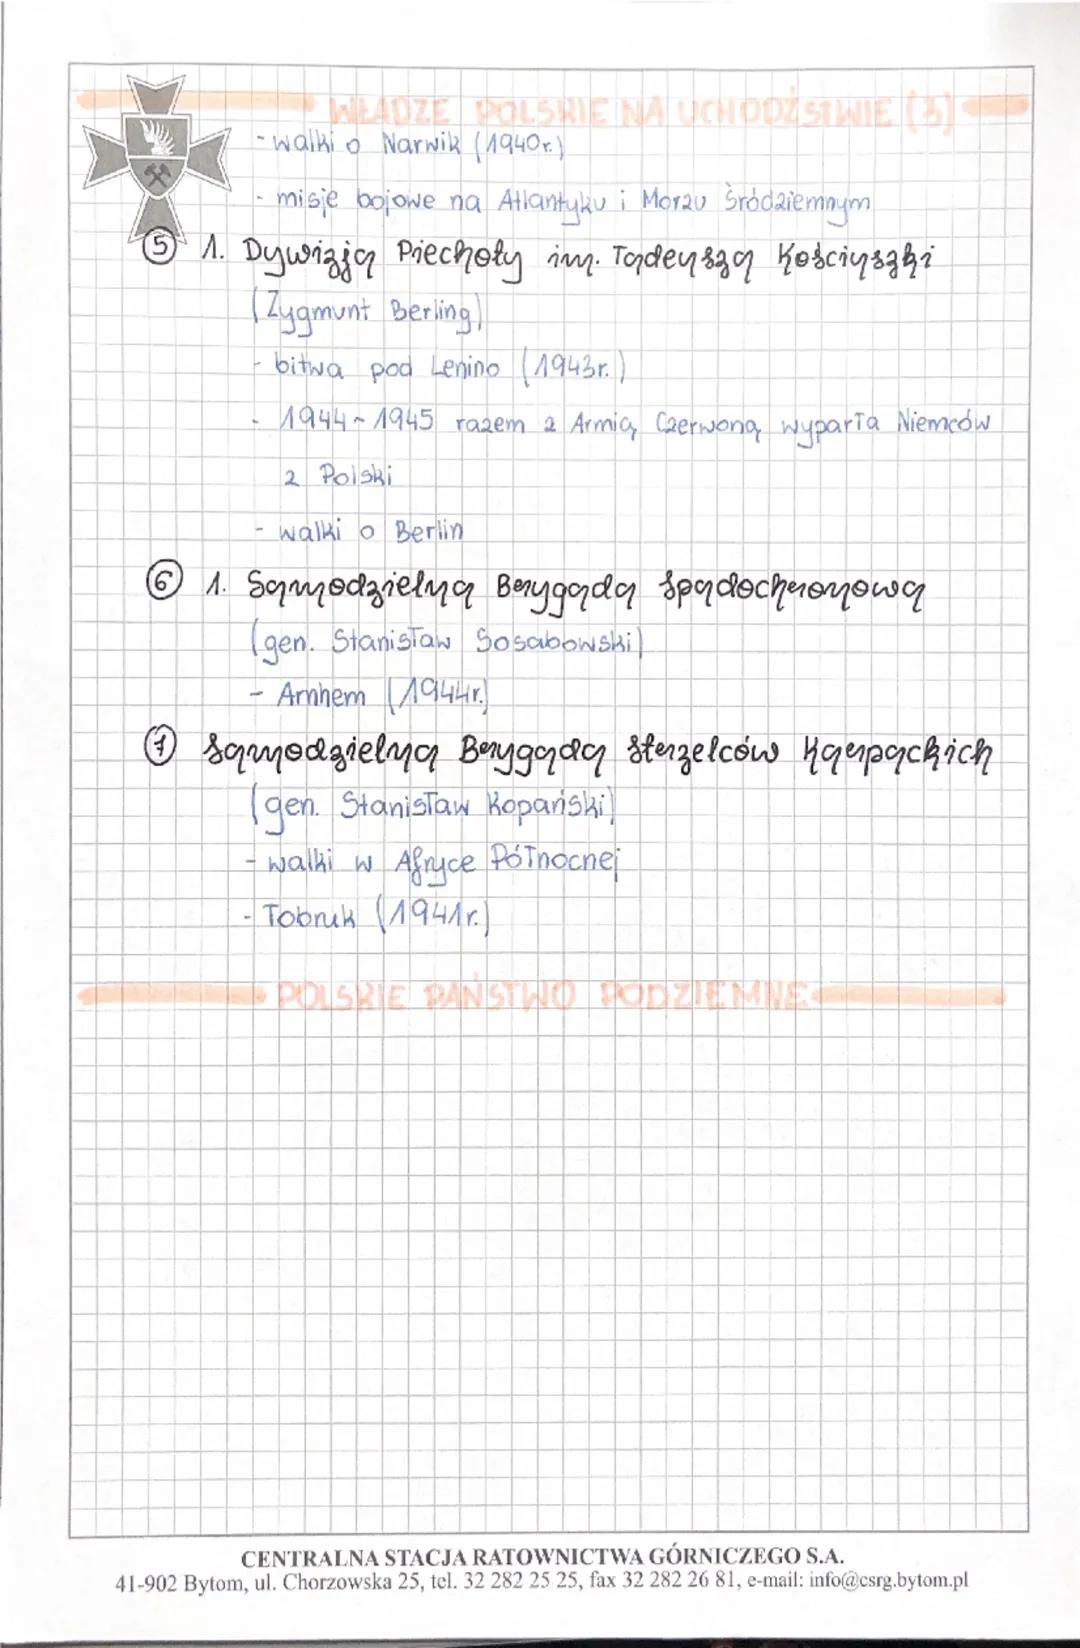 WŁADZE POLSKIE NA UCHODŹSTWIE (3)
- walki o Narwik (1940r.)
- misje bojowe na Atlantyku i Morzu Śródziemnym
⑤ 1. Dywizja Piechoty im. Tadeusza Kościuszki
(Zygmunt Berling)
- bitwa pod Lenino (1943r.)
- 1944-1945 razem z Armią Czerwoną wyparła Niemców
z Polski
- walki o Berlin
⑥ 1. Samodzielna Brygada Spadochronowa
(gen. Stanisław Sosabowski)
- Arnhem (1944r.)
⑦ Samodzielna Brygada Strzelców Karpackich
(gen. Stanisław Kopański)
- walki w Afryce Północnej
- Tobruk (1941r.)
POLSKIE PAŃSTWO PODZIEMNE
CENTRALNA STACJA RATOWNICTWA GÓRNICZEGO S.A.
41-902 Bytom, ul. Chorzowska 25, tel. 32 282 25 25, fax 32 282 26 81, e-mail: info@csrg.bytom.pl